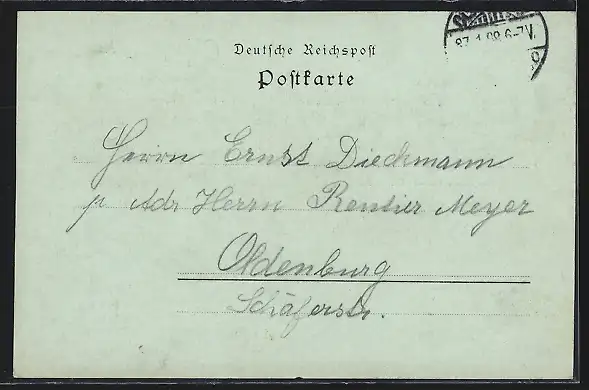 Deutsche Reichspost
Postkarte
6-7V.
Herrn Ernst Dieckmann
p Adr Herrn Rentier Meyer
Oldenburg
Schäferstr.